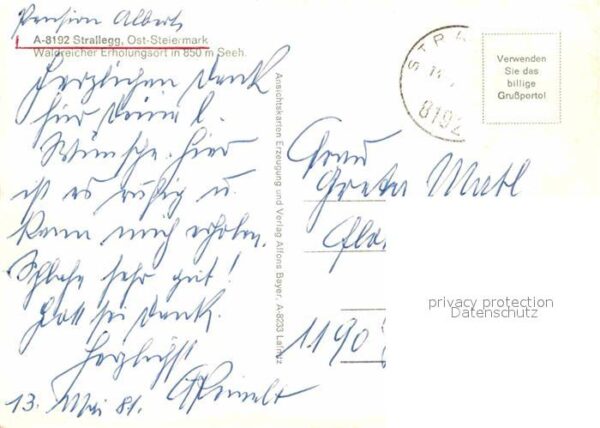 Pension Albert
A-8192 Strallegg, Ost-Steiermark
Waldreicher Erholungsort in 850 m Seeh.
Herzlichen Dank
für Deine l.
Wünsche. Hier
ist es ruhig u.
kann mich erholen.
Schlafe sehr gut!
Gott sei Dank.
Herzlichst
13. Mai 81.
Ansichtskarten Erzeugung und Verlag Alfons Bayer, A-8233 Lafnitz
STRA
8192
Verwenden
Sie das
billige
Grußporto!
Frau
Greta Matl
1190
privacy protection
Datenschutz